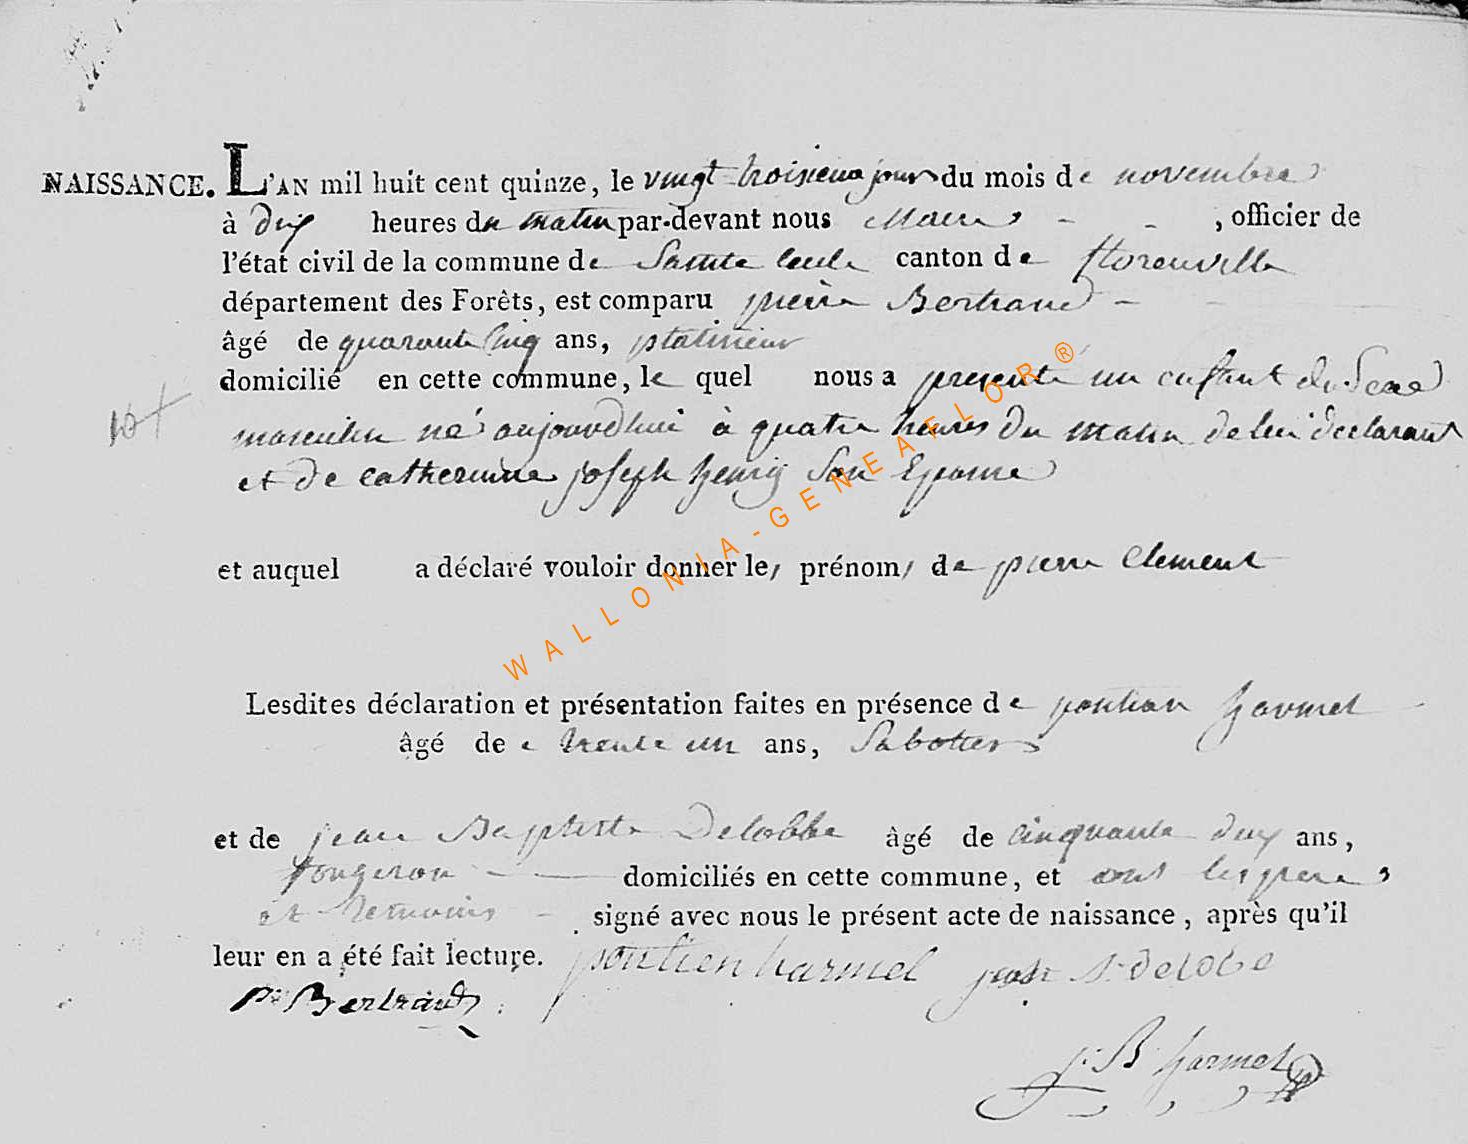 NAISSANCE. L'AN mil huit cent quinze, le vingt troisieme jour du mois de novembre
à dix heures du matin par-devant nous Maire - - , officier de
l'état civil de la commune de Sainte Cecile canton de florenville
département des Forêts, est comparu pierre Bertrand -
âgé de quarante cinq ans, platineur
domicilié en cette commune, le quel nous a presenté un enfant du Sexe
masculin né aujourdhui à quatre heures du matin de lui declarant
et de catherinne joseph henry Son Epouse
et auquel a déclaré vouloir donner les prénoms de pierre Clement
Lesdites déclaration et présentation faites en présence de pontian harmel
âgé de trente un ans, Sabotier
et de jean Baptiste Delobbe âgé de cinquante deux ans,
forgeron - domiciliés en cette commune, et ont les pere
et temoins - signé avec nous le présent acte de naissance, après qu'il
leur en a été fait lecture. pontien harmel jean b. Delobe
P. Bertrand
j. B. harmel
WALLONIA-GENEAFLOR®